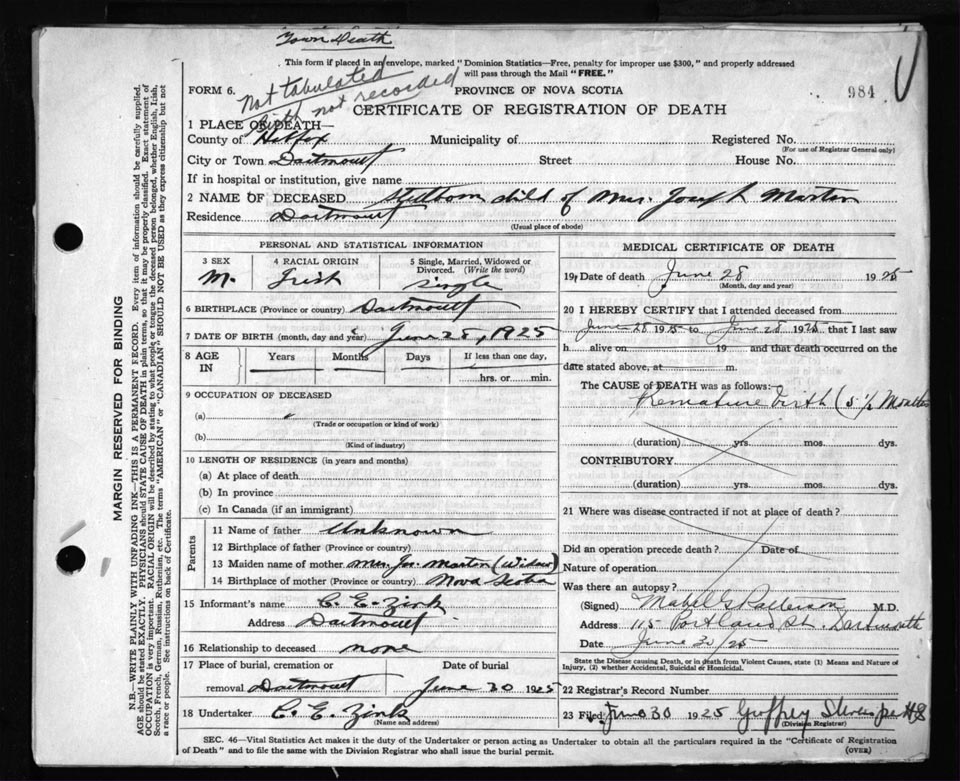 Town Death
This form if placed in an envelope, marked "Dominion Statistics—Free, penalty for improper use $300," and properly addressed
will pass through the Mail "FREE."
FORM 6.
Not tabulated
Birth not recorded
PROVINCE OF NOVA SCOTIA
984
CERTIFICATE OF REGISTRATION OF DEATH
1 PLACE OF DEATH—
County of Halifax Municipality of Registered No.
(For use of Registrar General only)
City or Town Dartmouth Street House No.
If in hospital or institution, give name
2 NAME OF DECEASED Stillborn child of Mrs. Joseph Martin
Residence Dartmouth
(Usual place of abode)
PERSONAL AND STATISTICAL INFORMATION
3 SEX 4 RACIAL ORIGIN 5 Single, Married, Widowed or
Divorced. (Write the word)
M. Irish Single
6 BIRTHPLACE (Province or country) Dartmouth
7 DATE OF BIRTH (month, day and year) June 28, 1925
8 AGE IN Years Months Days If less than one day,
hrs. or min.
9 OCCUPATION OF DECEASED
(a)
(Trade or occupation or kind of work)
(b)
(Kind of industry)
10 LENGTH OF RESIDENCE (in years and months)
(a) At place of death
(b) In province
(c) In Canada (if an immigrant)
Parents
11 Name of father Unknown
12 Birthplace of father (Province or country)
13 Maiden name of mother Mrs. Jos. Martin (Widow)
14 Birthplace of mother (Province or country) Nova Scotia
15 Informant's name C. E. Zink
Address Dartmouth
16 Relationship to deceased none
17 Place of burial, cremation or Date of burial
removal Dartmouth June 30 1925
18 Undertaker C. E. Zink
(Name and address)
MEDICAL CERTIFICATE OF DEATH
19 Date of death June 28 1925
(Month, day and year)
20 I HEREBY CERTIFY that I attended deceased from
June 28 1925 to June 28 1925 that I last saw
h alive on 19 and that death occurred on the
date stated above, at m.
The CAUSE OF DEATH was as follows:
Premature birth (5 1/2 Months
(duration) yrs. mos. dys.
CONTRIBUTORY
(duration) yrs. mos. dys.
21 Where was disease contracted if not at place of death?
Did an operation precede death? Date of
Nature of operation
Was there an autopsy?
(Signed) Mabel G Patterson M.D.
Address 115 Portland St. Dartmouth
Date June 30/25
State the Disease causing Death, or in death from Violent Causes, state (1) Means and Nature of
Injury, (2) whether Accidental, Suicidal or Homicidal.
22 Registrar's Record Number
23 Filed June 30 1925 Geoffrey
(Division Registrar)
SEC. 46—Vital Statistics Act makes it the duty of the Undertaker or person acting as Undertaker to obtain all the particulars required in the "Certificate of Registration
of Death" and to file the same with the Division Registrar who shall issue the burial permit.
(OVER)
MARGIN RESERVED FOR BINDING
N.B.—WRITE PLAINLY WITH UNFADING INK—THIS IS A PERMANENT RECORD. Every item of information should be carefully supplied.
AGE should be stated EXACTLY. PHYSICIANS should STATE CAUSE OF DEATH in plain terms, so that it may be properly classified. Exact statement of
OCCUPATION is very important. RACIAL ORIGIN will be described by stating to what people or tongue the deceased person belonged, whether English, Irish,
Scotch, French, German, Russian, Ruthenian, etc. The terms "AMERICAN" or "CANADIAN" SHOULD NOT BE USED as they express citizenship but not
a race or people. See instructions on back of Certificate.